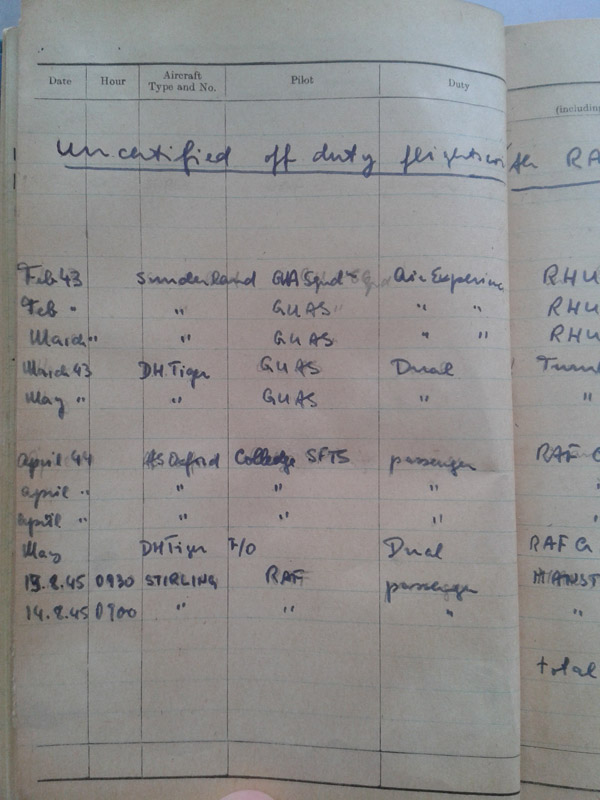 Date Hour Aircraft Type and No. Pilot Duty
(includin
Uncertified off duty flights with RA
Feb 43 Sunderland GUA Sqnd Air Experienc RHU
Feb " " GUAS " " RHU
March " " GUAS " " RHU
March 43 DH. Tiger GUAS Dual
May " " GUAS " "
April 44 AS Oxford College SFTS passenger RAF C
april " " " "
april " " " "
May DH Tiger F/O Dual RAF
13.8.45 0930 STIRLING RAF passenger MANST
14.8.45 0700 " " " "
total